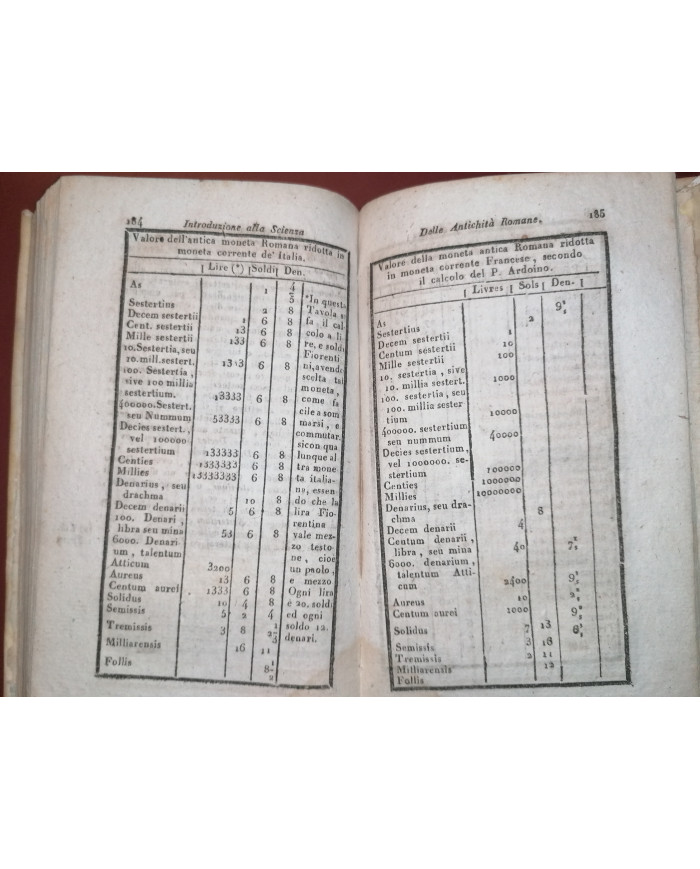 184 Introduzione alla Scienza
Valore dell'antica moneta Romana ridotta in
moneta corrente de' Italia.
| Lire (*) | Soldi | Den.
As 1 4/5
Sestertius 2 8
Decem sestertii 1 6 8
Cent. sestertii 13 6 8
Mille sestertii 133 6 8
10. Sestertia, seu
10. mill. sestert. 1333 6 8
100. Sestertia,
sive 100 millia
sestertium. 13333 6 8
400000. Sestert.
seu Nummum 53333 6 8
Decies sestert.,
vel 1000000
sestertium 133333 6 8
Centies 1333333 6 8
Millies 13333333 6 8
Denarius, seu
drachma 10 8
Decem denarii 5 6 8
100. Denari,
libra seu mina 53 6 8
6000. Denari-
um, talentum
Atticum 3200
Aureus 13 6 8
Centum aurei 1333 6 8
Solidus 10 4 8
Semissis 5 2 4
Tremissis 3 8 2/3
Milliarensis 16 11
Follis 8 1/2
*In questa
Tavola si
fa il cal-
colo a li-
re, e soldi
Fiorenti
ni, avendo
scelta tal
moneta,
come fa
cile a som
marsi, e
commutar.
si con qua
lunque al
tra mone
ta italia-
ne, essen
do che la
lira Fio-
rentina
vale mez-
zo testo-
ne, cioè
un paolo,
e mezzo
Ogni lira
è 20. soldi
ed ogni
soldo 12.
denari.
Delle Antichità Romane. 185
Valore della moneta antica Romana ridotta
in moneta corrente Francese, secondo
il calcolo del P. Ardoino.
| Livres | Sols | Den. |
As
Sestertius 2
Decem sestertii 1
Centum sestertii 10
Mille sestertii 100
10. sestertia, sive
10. millia sestert. 1000
100. sestertia, seu
100. millia sester
tium 10000
400000. sestertium
seu nummum 40000
Decies sestertium,
vel 1000000. se-
stertium 100000
Centies 1000000
Millies 10000000
Denarius, seu dra-
chma 8
Decem denarii 4
Centum denarii,
libra, seu mina 40
6000. denarium,
talentum Atti-
cum 2400
Aureus 10
Centum aurei 1000
Solidus 7 13
Semissis 3 18
Tremissis 2 11
Milliarensis 12
Follis